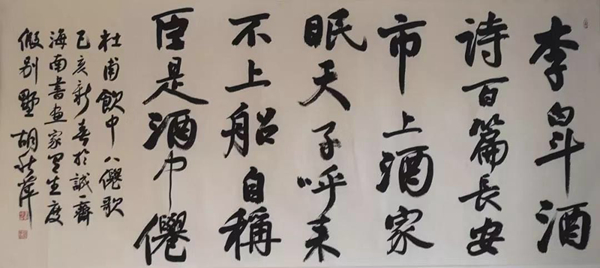 李白斗酒
詩百篇長安
市上酒家
眠天子呼来
不上船自稱
臣是酒中僊
杜甫飲中八僊歌
己亥新春於誠一齋
海南書画家生度
假别墅胡秋萍